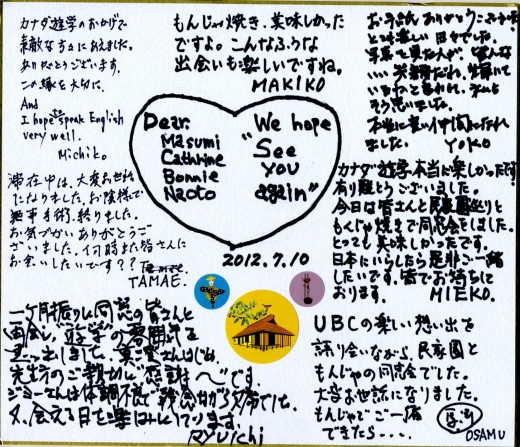 カナダ遊学のおかげで
素敵な方々にあえました。
ありがとうございます。
この縁を大切に。
And
I hope speak English
very well.
Michiko
もんじゃ焼き、美味しかった
ですよ。こんなふうな
出会いも楽しいですね。
MAKIKO
お手紙ありがとう
とは楽しい日々でした。
写真を見た人が、皆んな
いい笑顔だね、輝いて
いるねと言われて、私も
そう思いました。
本当に良い仲間になれ
ました。 YOKO
Dear.
Masumi
Cathrine
Bonnie
Naoto
We hope
"See
you
again"
2012.7.10
滞在中は、大変お世話
になりました。お陰様で
無事手術、終りました。
お気づかいありがとうご
ざいました。何時また皆さんに
お会いしたいです??
TAMAE.
カナダ遊学本当に楽しかったです
有り難とうございました。
今日は皆さんと民家園巡りと
もんじゃ焼きで同窓会をしました。
とっても美味しかったです。
日本にいらしたら是非ご一緒
したいです。皆でお待ちして
おります。 MIEKO.
一ヶ月振りに同窓の皆さんと
再会し、遊学の雰囲気を
先生のご親切に感謝
ジミーさんは体調不良で残念ながら欠席でした。
又、会える日を楽しみにしています。
RYUichi
UBCの楽しい想い出を
語り合いながら、民家園と
もんじゃの同窓会でした。
大変お世話になりました。
もんじゃでご一緒
できたら・・・・
OSAMU